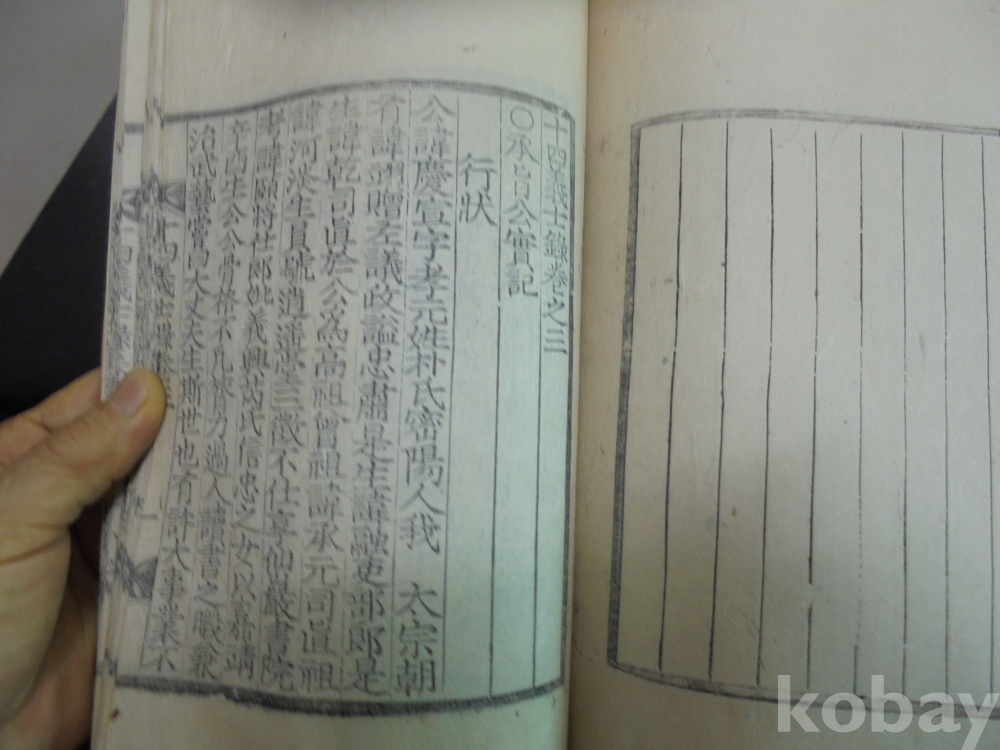 十四義士錄卷之三
○承旨公實記
行狀
公諱慶宣字孝元姓朴氏密陽人我 太宗朝
有諱翊贈左議政謚忠肅是生諱融吏部郎是
生諱乾司直於公爲高祖曾祖諱承元司直祖
諱河淡生員號逍遙堂三徵不仕享仙巖書院
考諱頤將仕郎妣義興芮氏信忠之女以嘉靖
辛丙生公公骨格不凡膂力過人讀書之暇兼
治武藝嘗曰大丈夫生斯世也有許大事業不
十四義士
kobay